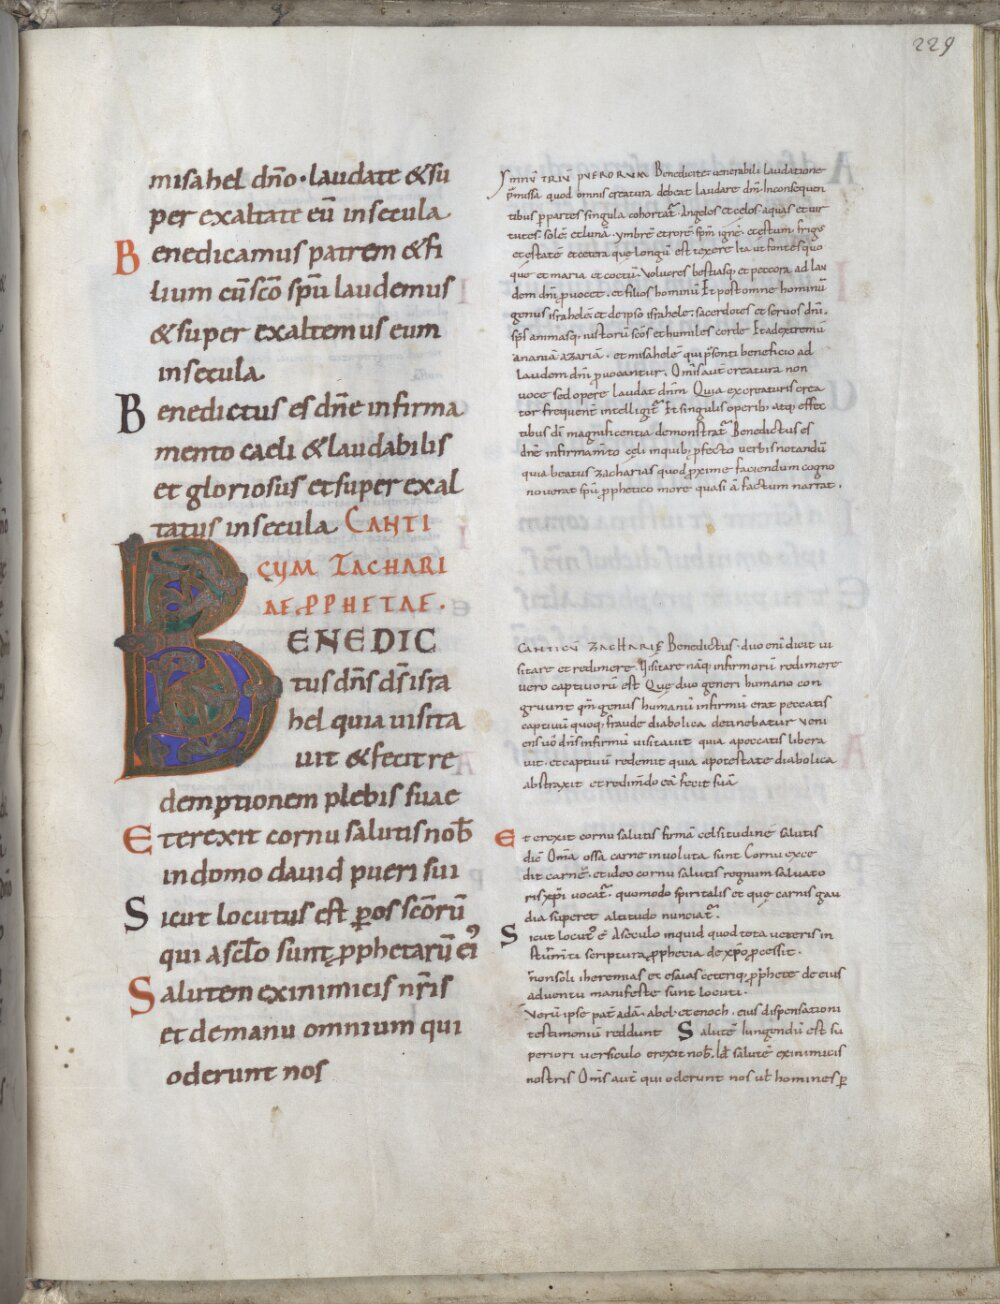 229
misahel dn̄o · laudate & su
per exaltate eū in secula
Benedicamus patrem & fi
lium cū sc̄o sp̄u laudemus
& super exaltemus eum
in secula
Benedictus es dn̄e in firma
mento caeli & laudabilis
et gloriosus et super exal
tatus in secula CANTI
CUM ZACHARI
AE PPHETAE ·
BENEDIC
tus dn̄s d̄s isra
hel quia uisita
uit & fecit re
demptionem plebis suae
Et erexit cornu salutis nob̄
in domo dauid pueri sui
Sicut locutus est ꝑ os sc̄orū
qui a sc̄lo sunt ꝓphetarū ei᾽
Salutem ex inimicis nr̄is
et de manu omnium qui
oderunt nos
Ymnū TRIŪ PUERORUM Benedicite uenerabili laudatione
p̄missa quod omnis creatura debeat laudare dn̄m In consequen
tibus ꝑ partes singula cohortat᷑ · Angelos et celos aquas et uir
tutes · solē et lunā · ymbrē et rorē sp̄m ignē · et estum frigꝰ
et estatē et cetera que longū est texere Ita ut fontes quo
que et maria et coetū · Volucres bestiasq; et peccora ad lau
dem dn̄i ꝓuocet · et filios hominū Et post omne hominū
genus israhelē et de ipso israhele · sacerdotes et seruos dn̄i ·
sp̄s animasq; iustorū sc̄os et humiles corde Et ad extremū
ananiā azariā · et misahelē qui p̄senti beneficio ad
laudem dn̄i ꝓuocantur · Om̄is aut̄ creatura non
uoce sed opere laudat dn̄m Quia ex creaturis crea
tor frequent̄ intelligit᷑ Et singulis operib; atq; effec
tibus dī magnificentia demonstrat᷑ Benedictus es
dn̄e in firmam̄to cęli inquib; ꝓfecto uerbis notandū
quia beatus zacharias quod ꝓxime faciendum cogno
nouerat sp̄u ꝓphetico more quasi ā factum narrat ·
CANTICŪ ZACHARIĘ Benedictus · duo eni dicit ui
sitare et redimere Visitare nāq; infirmorū redimere
uero captiuorū est Quę duo generi humano con
gruunt qn̄ genus humanū infirmū erat peccatis
captiuū quoq; fraude diabolica detinebatur Veni
ens uō dn̄s infirmū uisitauit quia a peccatis libera
uit · et captiuū redemit quia a potestate diabolica
abstraxit et redim̄do eā fecit suā
Et erexit cornu salutis firmā celsitudinē salutis
dic̄ Om̄a ossa carne inuoluta sunt Cornu exce
dit carnē · et ideo cornu salutis regnum saluato
ris xp̄i uocat᷑ · quomodo spiritalis et quę carnis gau
dia superet altitudo nunciat᷑ ·
Sicut locut᾽ ē A seculo inquid quod tota ueteris in
strum̄ti scriptura ꝓphecia de xp̄o ꝓcessit ·
n̄on soli iheremias et esaias ceteriq; ꝓphete de eius
aduentu manifeste sunt locuti ·
Verū ipse pat̄ adā · abel · et enoch · eius dispensationi
testimoniū reddunt Salutē Iungendū est su
periori uersiculo erexit nob̄ · Id ē salutē ex inimicis
nostris Om̄s aut̄ qui oderunt nos ut̄ homines ꝑ